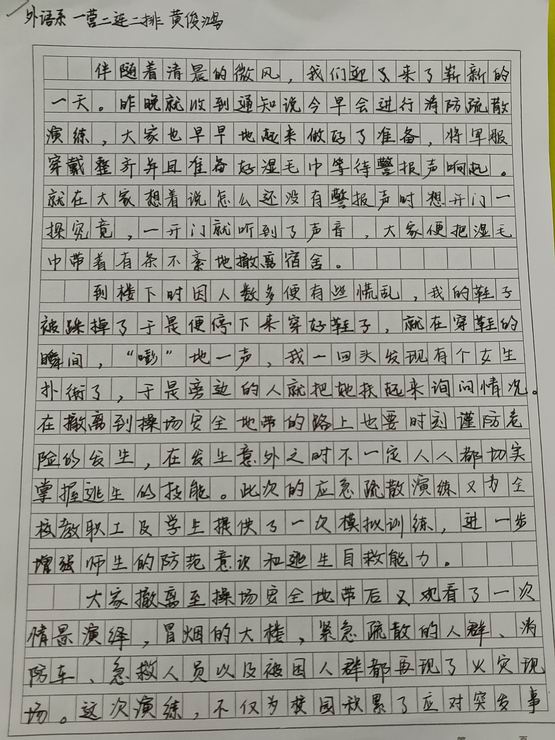 外语系 一营二连二排 黄俊鸿
伴随着清晨的微风，我们迎来了崭新的
一天。昨晚就收到通知说今早会进行消防疏散
演练，大家也早早地起来做好了准备，将军服
穿戴整齐并且准备好湿毛巾等待警报声响起。
就在大家想着说怎么还没有警报声时想开门一
探究竟，一开门就听到了声音，大家便把湿毛
巾带着有条不紊地撤离宿舍。
到楼下时因人数多便有些慌乱，我的鞋子
被踩掉了于是便停下来穿好鞋子，就在穿鞋的
瞬间，“嘭”地一声，我一回头发现有个女生
扑街了，于是旁边的人就把她扶起来询问情况。
在撤离到操场安全地带的路上也要时刻谨防危
险的发生，在发生意外之时不一定人人都切实
掌握逃生的技能。此次的应急疏散演练又为全
校教职工及学生提供了一次模拟训练，进一步
增强师生的防范意识和逃生自救能力。
大家撤离至操场安全地带后又观看了一次
情景演绎，冒烟的大楼，紧急疏散的人群、消
防车、急救人员以及被困人群都再现了火灾现
场。这次演练，不仅为校园积累了应对突发事